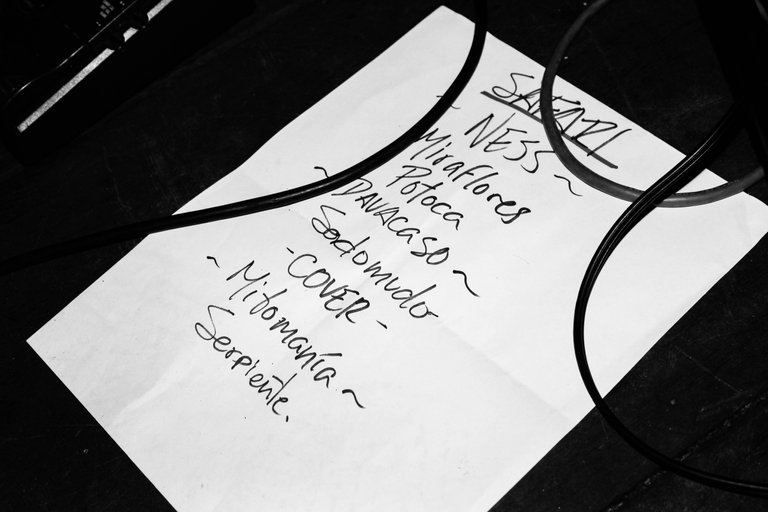 SAFARI
~ NESS ~
Miraflores
Potoca
~ DAVACASO ~
Sordomudo
- COVER -
~ Mitomanía ~
Serpiente.